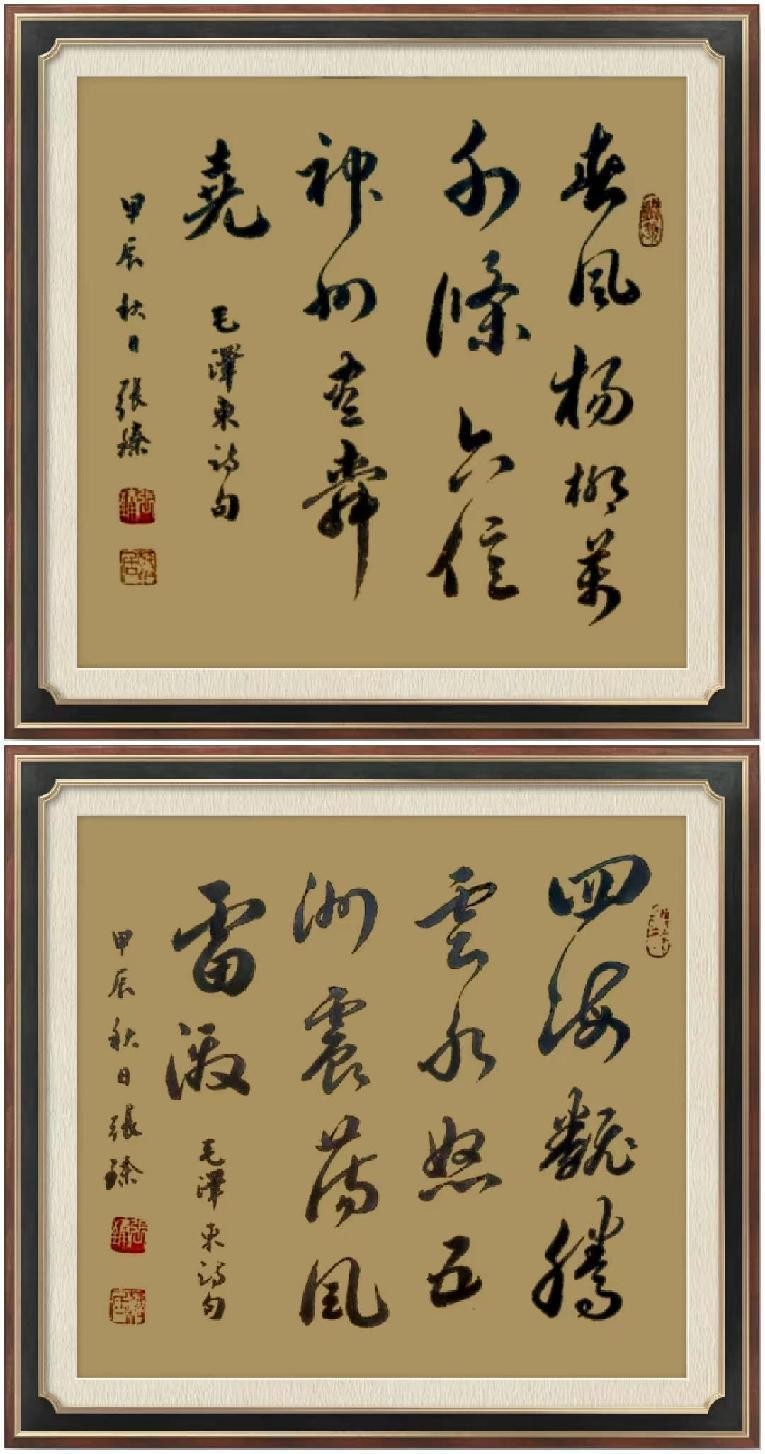 春風楊柳萬
千條六億
神州盡舜
堯
毛澤東詩句
甲辰秋日張臻
四海翻騰
雲水怒五
洲震蕩風
雷激
毛澤東詩句
甲辰秋日張臻